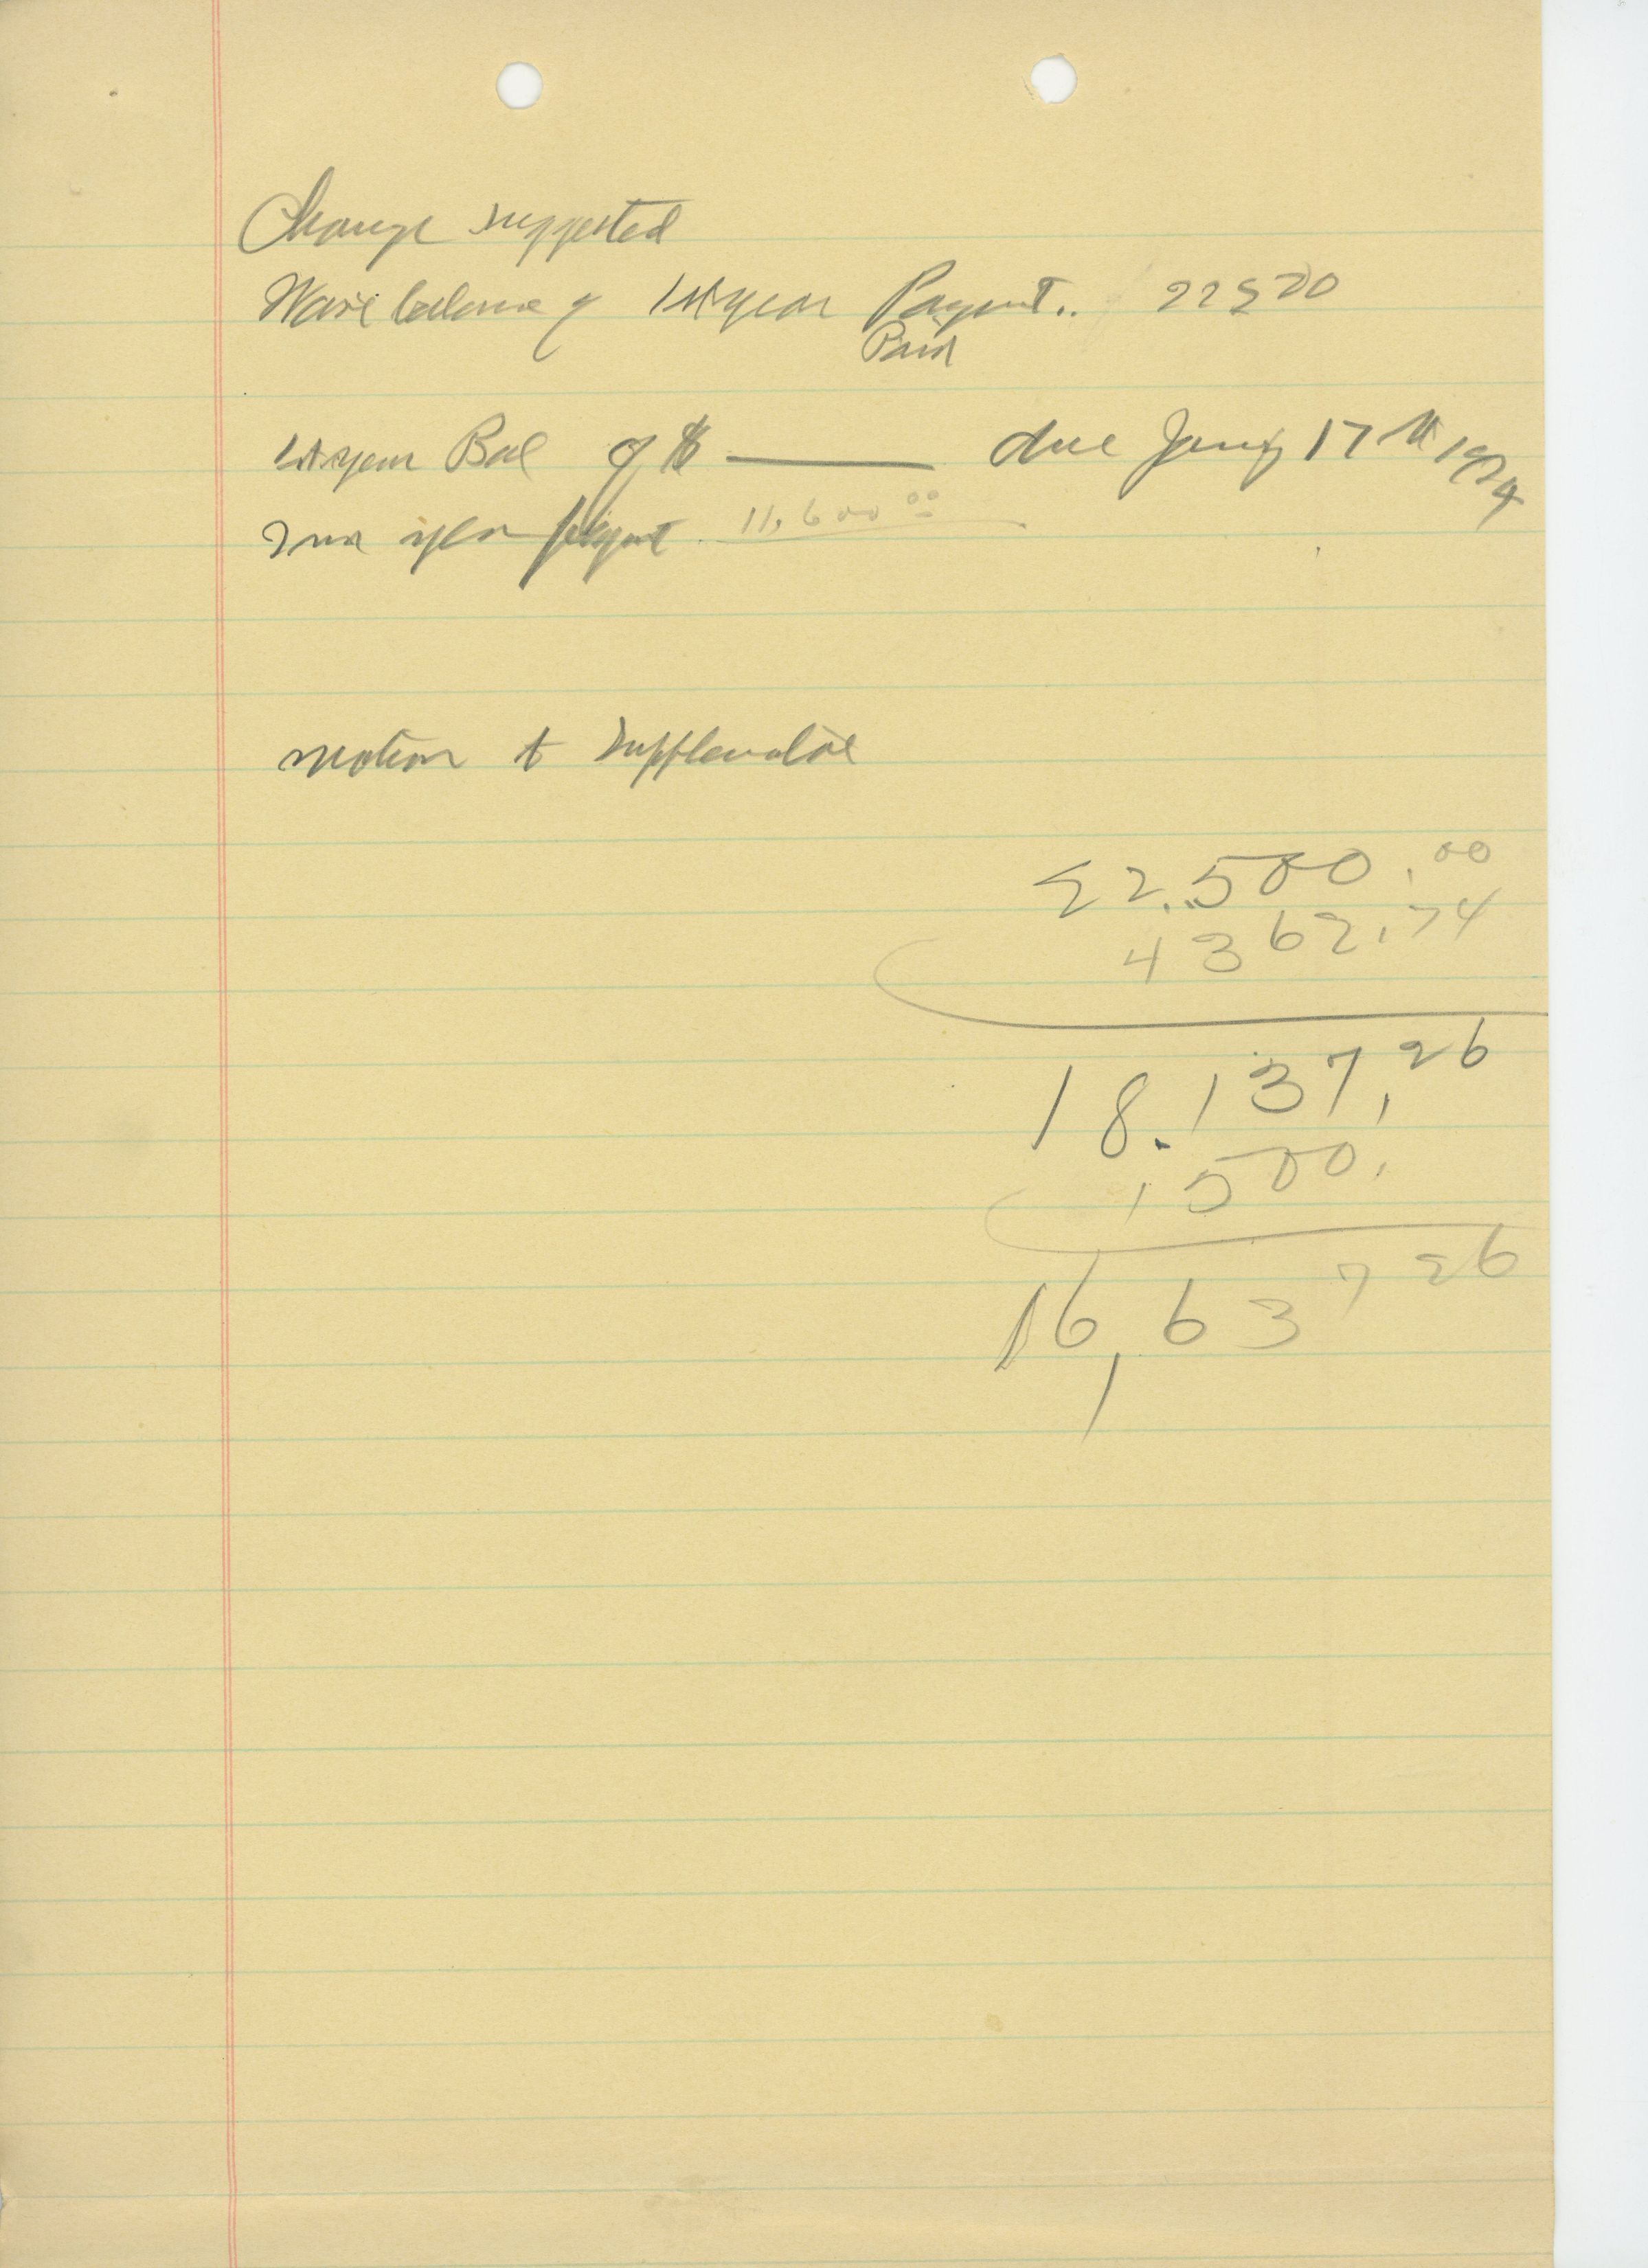 Change suggested
balance of 1st year Payment.. 22500
Paid
1st year Bal of $ ——— due Jany 17th 1974
2nd year payment 11,600.00
motion to
22,500.00
4362.74
18,137.26
1500.
16,637 26